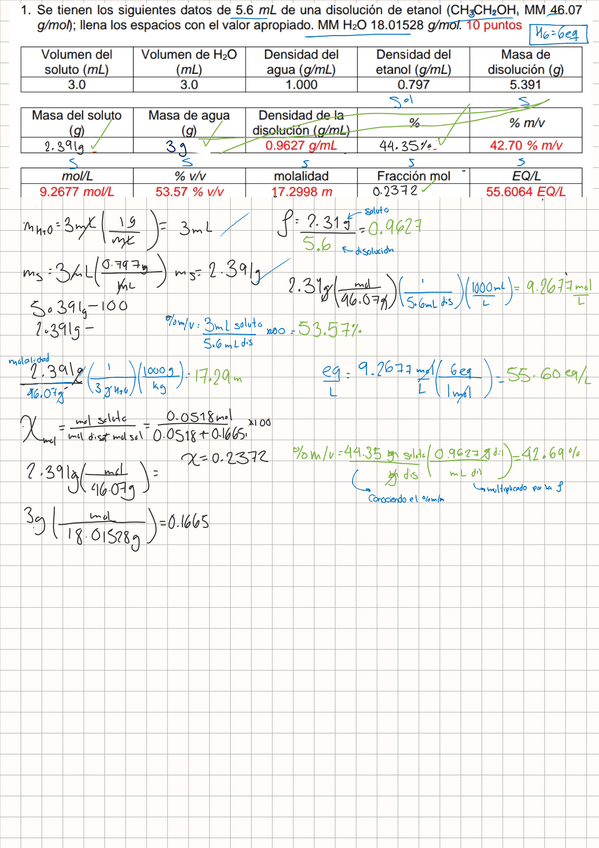 1. Se tienen los siguientes datos de 5.6 mL de una disolución de etanol (CH₃CH₂OH, MM 46.07
g/mol); llena los espacios con el valor apropiado. MM H₂O 18.01528 g/mol. 10 puntos
H6=6eq
Volumen del soluto (mL) Volumen de H₂O (mL) Densidad del agua (g/mL) Densidad del etanol (g/mL) Masa de disolución (g)
3.0 3.0 1.000 0.797 5.391
Sol S
Masa del soluto (g) Masa de agua (g) Densidad de la disolución (g/mL) % % m/v
2.391g 3g 0.9627 g/mL 44.35% 42.70 % m/v
S S S S S
mol/L % v/v molalidad Fracción mol EQ/L
9.2677 mol/L 53.57 % v/v 17.2998 m 0.2372 55.6064 EQ/L
mH₂O = 3mL (1g/mL) = 3mL
ρ = 2.31g/5.6 = 0.9627
soluto
disolución
ms = 3mL (0.797g/mL) ms = 2.391g
2.31g (mol/46.07g) (1/5.6mL dis) (1000mL/L) = 9.2677 mol/L
5.0391g - 100
2.391g -
%m/v: 3mL soluto/5.6mL dis x100 = 53.57%
molalidad
2.391g/46.07g (1/3g H₂O) (1000g/kg) = 17.29m
eq/L = 9.2677 mol/L (6eq/1mol) = 55.60 eq/L
Xmol = mol soluto/mol disol+mol sol = 0.0518mol/0.0518+0.1665 x100
x = 0.2372
%m/v = 44.35 g soluto/g dis (0.9627g dis/mL dis) = 42.69%
Conociendo el %m/m
multiplicado por la ρ
2.391g (mol/46.07g) =
3g (mol/18.01528g) = 0.1665